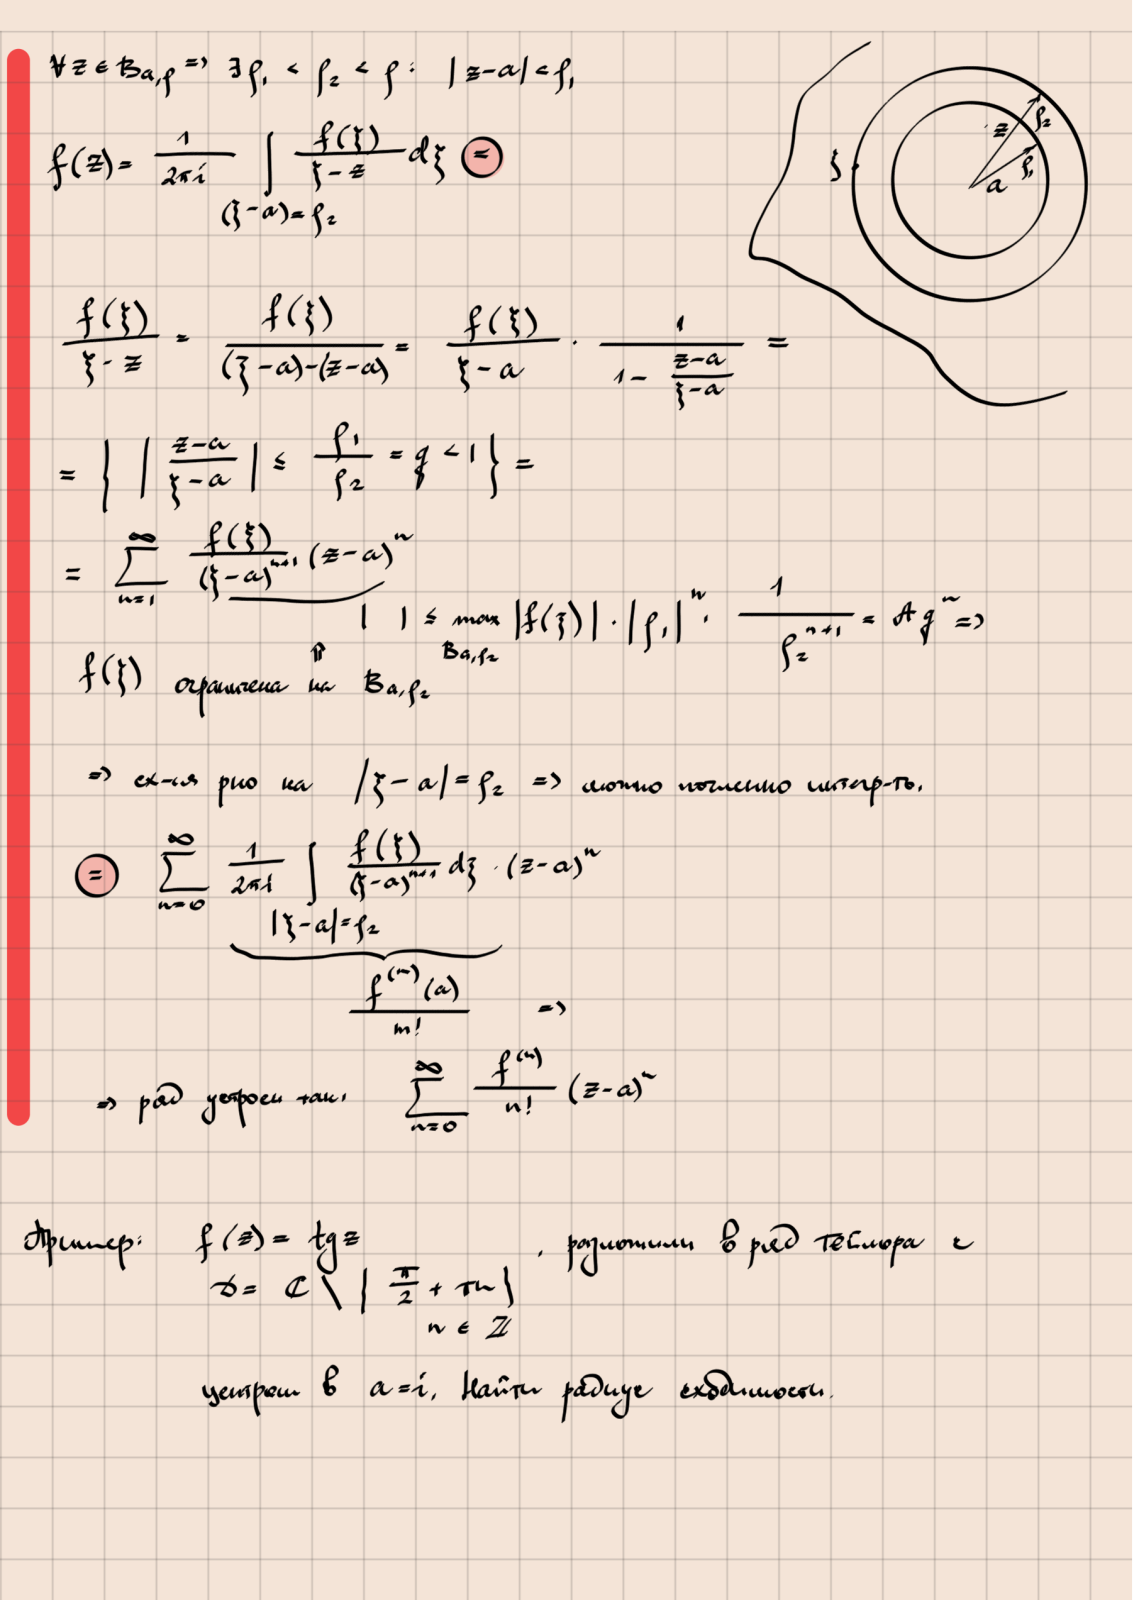 ∀ z ∈ B_{a,ρ} => ∃ ρ₁ < ρ₂ < ρ : |z-a| < ρ₁
f(z) = 1/(2πi) ∫_{(ξ-a)=ρ₂} f(ξ)/(ξ-z) dξ =
ξ z ρ₂ ρ₁ a
f(ξ)/(ξ-z) = f(ξ)/((ξ-a)-(z-a)) = f(ξ)/(ξ-a) · 1/(1 - (z-a)/(ξ-a)) =
= { |(z-a)/(ξ-a)| ≤ ρ₁/ρ₂ = q < 1 } =
= ∑_{n=1}^{∞} f(ξ)/(ξ-a)^{n+1} (z-a)^n
| | ≤ max_{B_{a,ρ₂}} |f(ξ)| · |ρ₁|^n · 1/ρ₂^{n+1} = A q^n =>
⇑
f(ξ) ограничена на B_{a,ρ₂}
=> сх-ся рно на |ξ-a| = ρ₂ => можно почленно интегр-ть.
= ∑_{n=0}^{∞} 1/(2πi) ∫_{|ξ-a|=ρ₂} f(ξ)/(ξ-a)^{n+1} dξ · (z-a)^n
f^{(n)}(a)/n! =>
=> ряд устроен так: ∑_{n=0}^{∞} f^{(n)}/n! (z-a)^n
Пример: f(z) = tg z , разложили в ряд Тейлора с
D = ℂ \ { π/2 + πn }
n ∈ ℤ
центром в a=i. Найти радиус сходимости.